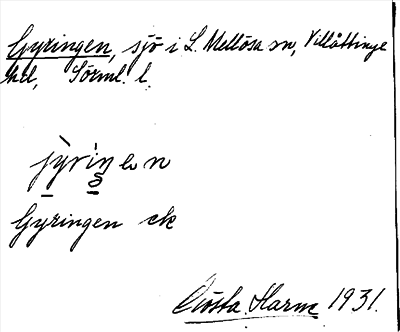 Gyringen, sjö i L. Mellösa sn, Villåttinge
hd, Sörml. l.
jỳrìŋen
Gyringen ek
Gösta Harne 1931.